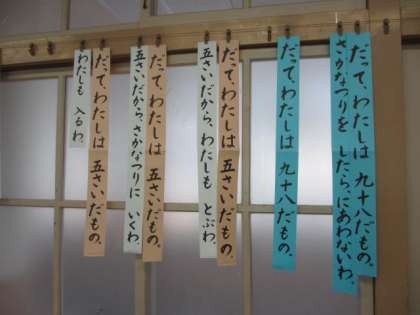 だって、わたしは 九十八だもの。
さかなつりを したら、にあわないわ。
だって、わたしは 九十八だもの。
だって、わたしは 五さいだもの。
五さいだから、わたしも とぶわ。
だって、わたしは 五さいだもの。
五さいだから、さかなつりに いくわ。
だって、わたしは 五さいだもの。
わたしも 入るわ。